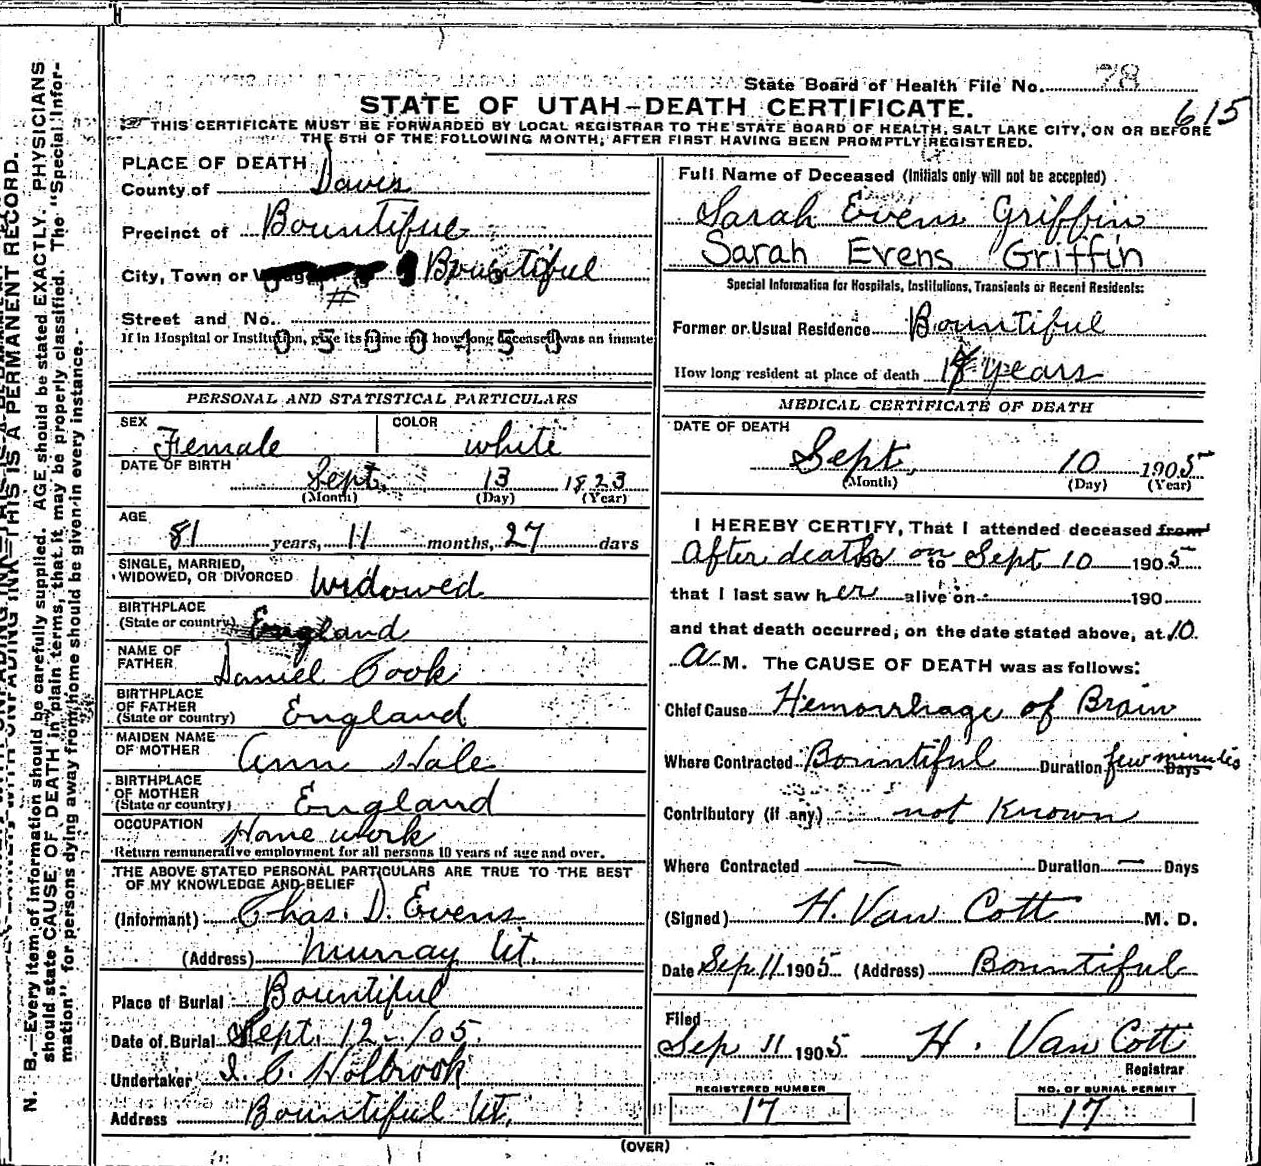 State Board of Health File No. 78
615
STATE OF UTAH—DEATH CERTIFICATE.
THIS CERTIFICATE MUST BE FORWARDED BY LOCAL REGISTRAR TO THE STATE BOARD OF HEALTH, SALT LAKE CITY, ON OR BEFORE
THE 5TH OF THE FOLLOWING MONTH, AFTER FIRST HAVING BEEN PROMPTLY REGISTERED.
PLACE OF DEATH
County of Davis
Precinct of Bountiful
City, Town or Bountiful
Street and No.
If in Hospital or Institution, give its name and how long deceased was an inmate
PERSONAL AND STATISTICAL PARTICULARS
SEX Female COLOR white
DATE OF BIRTH
Sept. 13 1823
(Month) (Day) (Year)
AGE
81 years, 11 months, 27 days
SINGLE, MARRIED,
WIDOWED, OR DIVORCED Widowed
BIRTHPLACE
(State or country) England
NAME OF
FATHER Daniel Cook
BIRTHPLACE
OF FATHER
(State or country) England
MAIDEN NAME
OF MOTHER Ann Hale
BIRTHPLACE
OF MOTHER
(State or country) England
OCCUPATION Home work
Return remunerative employment for all persons 10 years of age and over.
THE ABOVE STATED PERSONAL PARTICULARS ARE TRUE TO THE BEST
OF MY KNOWLEDGE AND BELIEF
(Informant) Chas. D. Evens
(Address) Murray Ut.
Place of Burial Bountiful
Date of Burial Sept. 12 - /05.
Undertaker I. C. Holbrook
Address Bountiful Ut.
Full Name of Deceased (Initials only will not be accepted)
Sarah Evens Griffin
Sarah Evens Griffin
Special Information for Hospitals, Institutions, Transients or Recent Residents:
Former or Usual Residence Bountiful
How long resident at place of death years
MEDICAL CERTIFICATE OF DEATH
DATE OF DEATH
Sept. 10 1905
(Month) (Day) (Year)
I HEREBY CERTIFY, That I attended deceased from
After death on 190 to Sept 10 1905
that I last saw her alive on 190
and that death occurred, on the date stated above, at 10.
A M. The CAUSE OF DEATH was as follows:
Chief Cause Hemorrhage of Brain
Where Contracted Bountiful Duration few minutes Days
Contributory (if any) not Known
Where Contracted — Duration — Days
(Signed) H. Van Cott M. D.
Date Sep 11 1905 (Address) Bountiful
Filed
Sep 11 1905 H. Van Cott
Registrar
REGISTERED NUMBER
17
NO. OF BURIAL PERMIT
17
(OVER)
N. B.—Every item of information should be carefully supplied. AGE should be stated EXACTLY. PHYSICIANS
should state CAUSE OF DEATH in plain terms, that it may be properly classified. The "Special Infor-
mation" for persons dying away from home should be given in every instance.
THIS IS A PERMANENT RECORD.